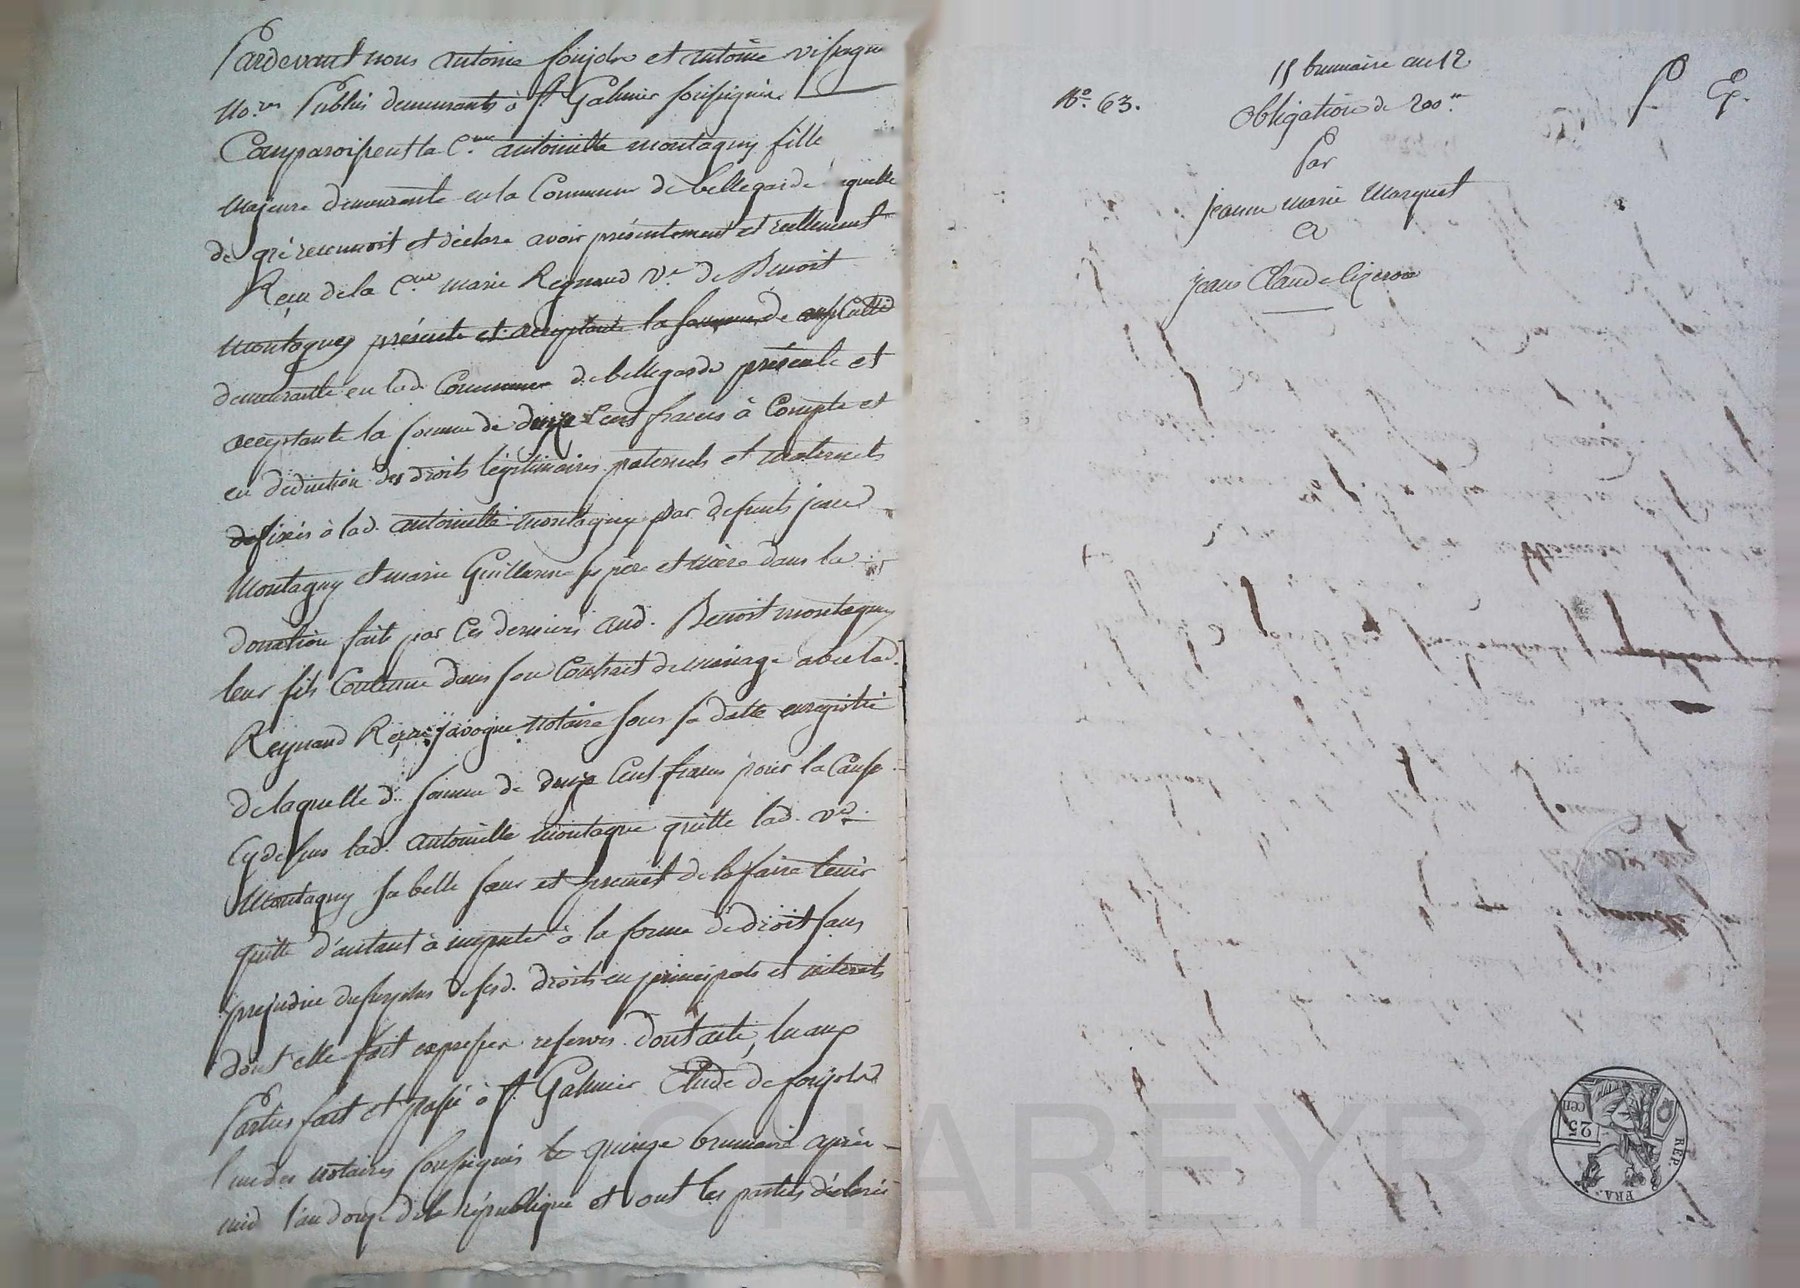 Pardevant nous antoine foujols et antoine vispagne
No.res Publics demeurants à St. Galmier soussignés
Comparoissent la C.ne antoinette montagny fille
majeure demeurante en la Commune de bellegarde laquelle
de gré reconnoit et déclare avoir présentement et réellement
Reçu de la C.ne marie Reynaud Ve. de Benoit
Montagny présente et acceptante la somme de
demeurante en lad. Commune de bellegarde présente et
acceptante la somme de deux Cent francs à Compte et
en déduction des droits légitimaires paternels et maternels
fixés à lad. antoinette montagny par defunts jean
Montagny et marie Guillaume ses père et mère dans la
donation faite par ces derniers aud. Benoit montagny
leur fils Contenue dans son Contrat de mariage avec lad.
Reynaud Reçu javogue notaire sous sa datte enregistré
de laquelle d. somme de deux Cent francs pour la Cause
Cy dessus lad. antoinette montagne quitte lad. Ve.
Montagny sa belle sœur et promet de la faire tenir
quitte d'autant à imputer à la forme de droit sans
préjudice du surplus de sesd. droits en principals et interets
dont elle fait expresses reserves. Dont acte, lu aux
Parties fait et passé à St. Galmier Etude de foujols
l'un des notaires soussignés le quinze brumaire après
mid l'an douze de la république et ont les parties déclaré
15 brumaire an 12
No. 63.
P Ep.
Obligation de 200 tt.
Par
jeanne marie Marquet
A
jean Claude lizeron
25
cen
REP.
FRA.
CHAREYRO